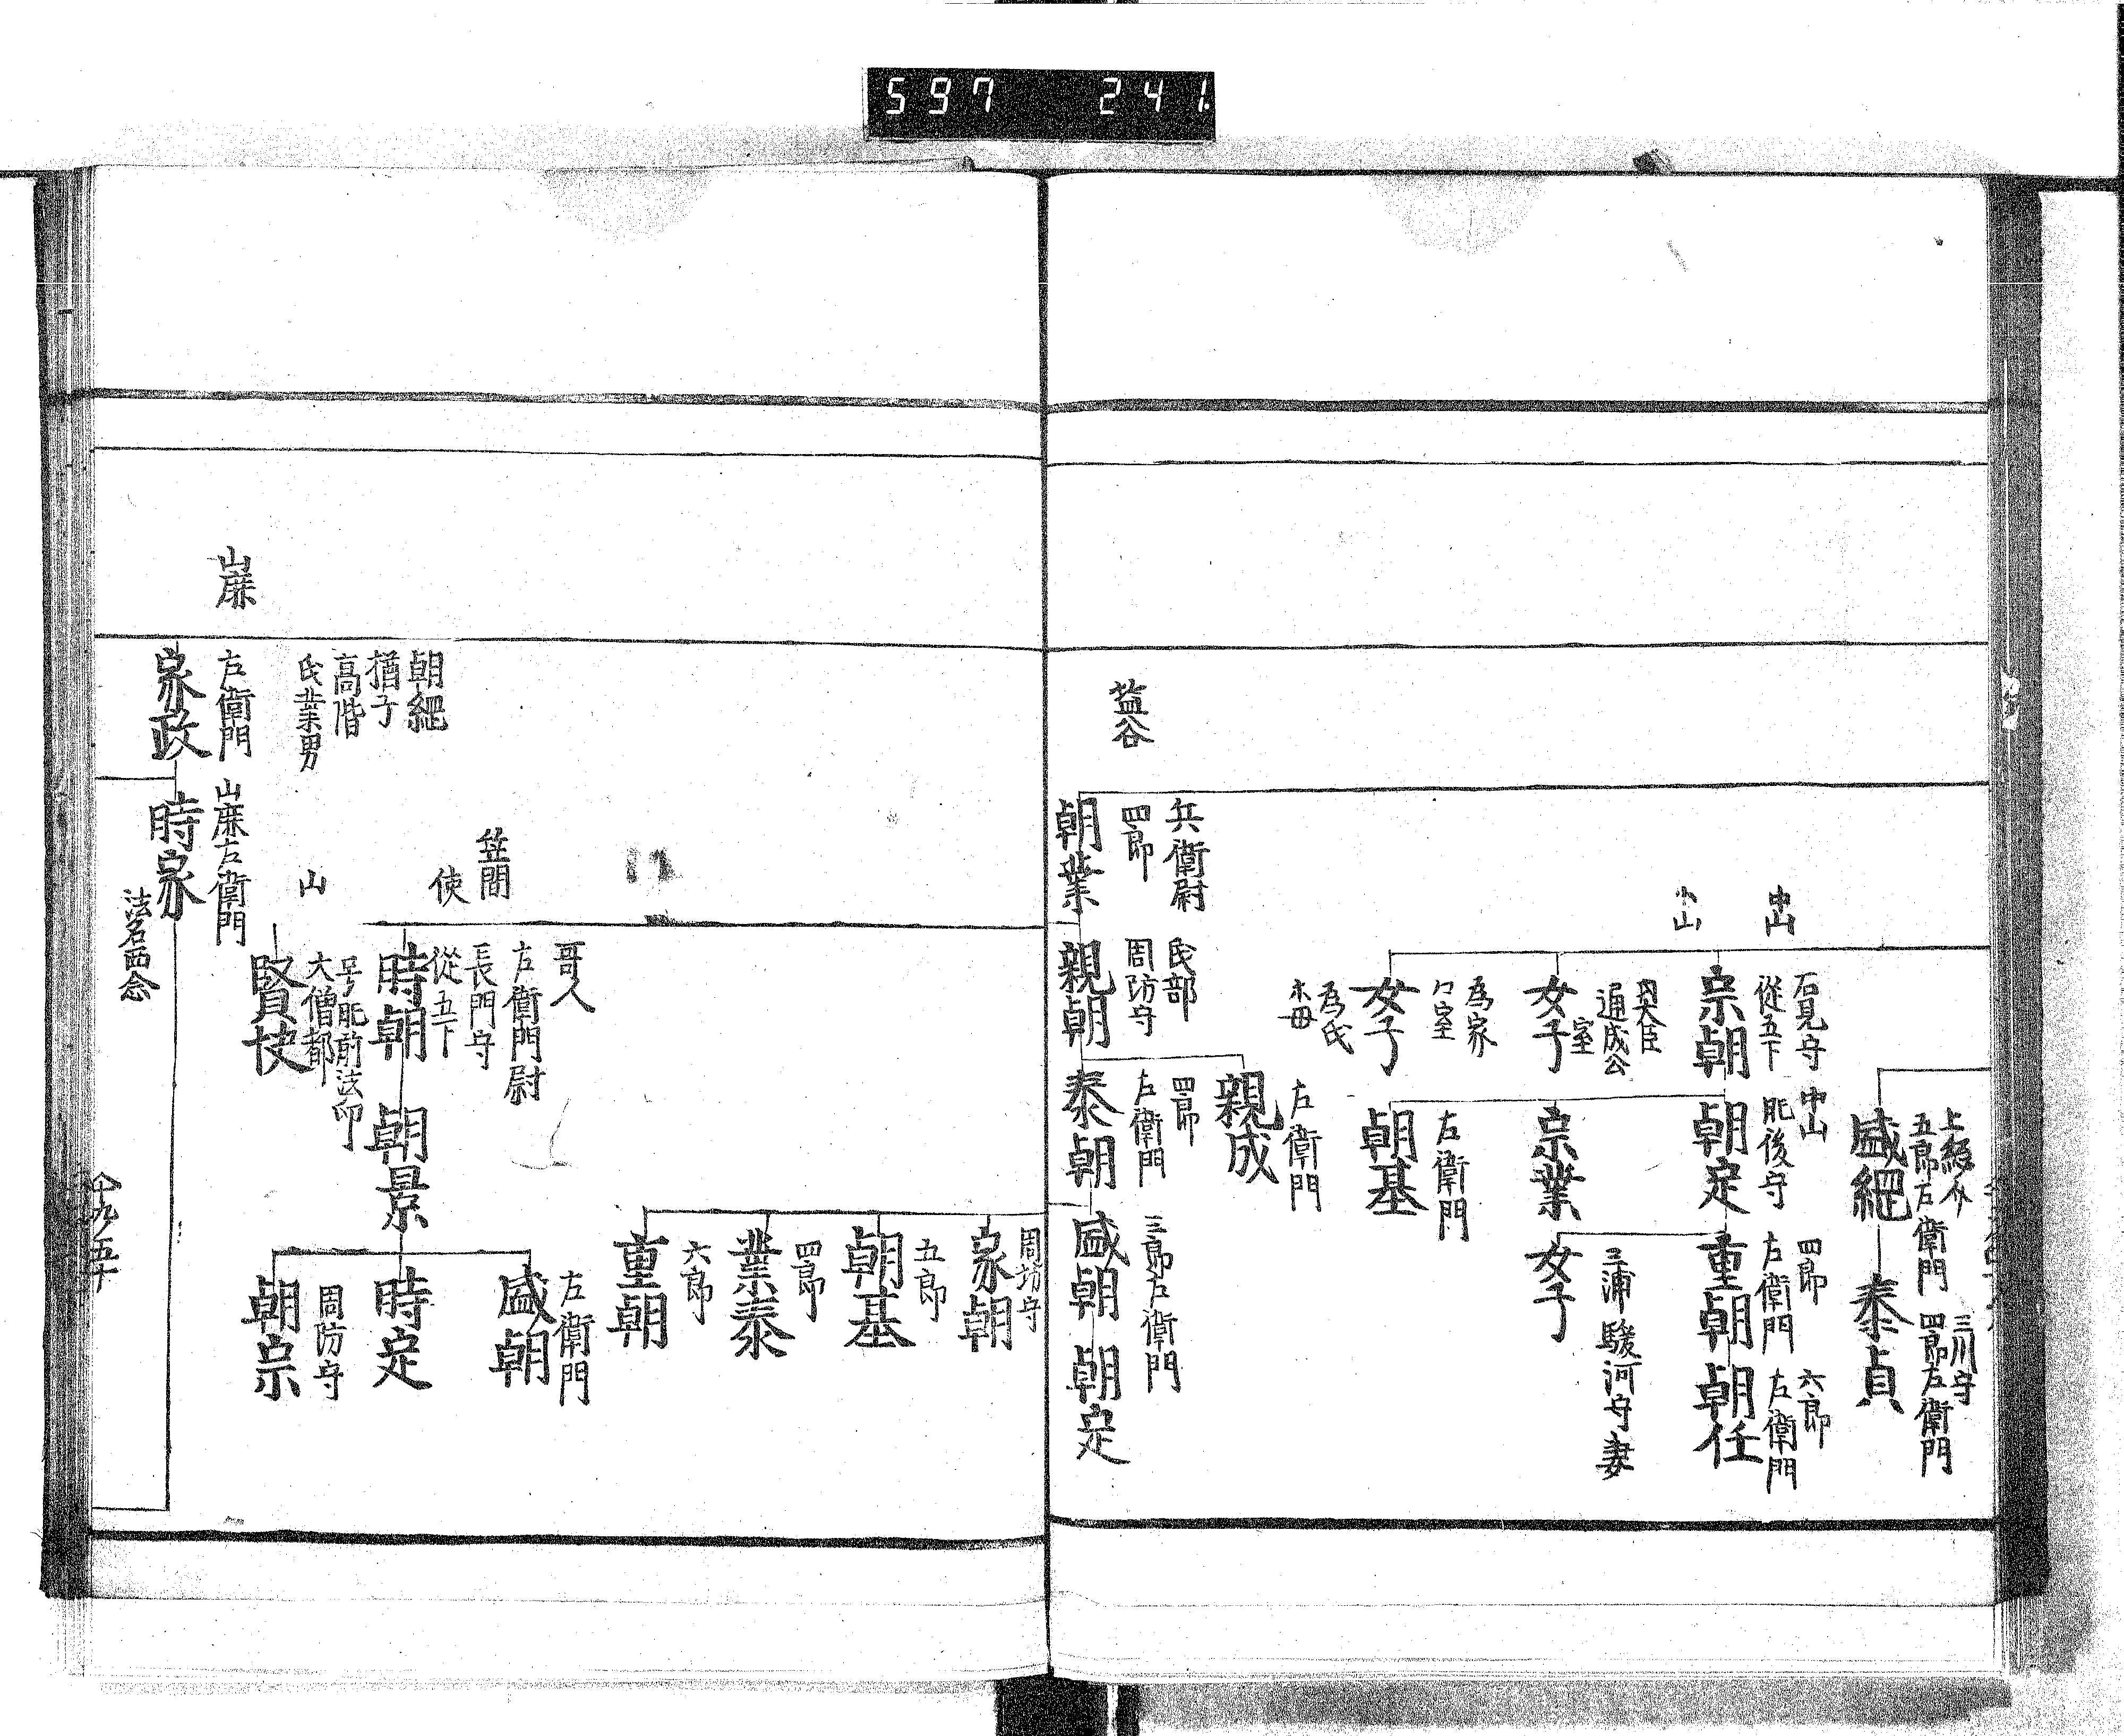 597 241
三川守
上緫介
五郎左衛門
盛綱
四郎左衛門
泰貞
中山
小山
石見守
從五下
宗朝
中山
肥後守
朝定
四郎
左衛門
重朝
六郎
左衛門
朝任
内大臣
通成公
室
女子
宗業
三浦駿河守妻
女子
為家
室
女子
為氏
母
左衛門
朝基
左衛門
親成
益谷
兵衛尉
四郎
朝業
民部
周防守
親朝
四郎
左衛門
泰朝
三郎左衛門
盛朝
朝定
周坊守
家朝
五郎
朝基
四郎
業泰
六郎
重朝
笠間
使
哥人
左衛門尉
長門守
從五下
時朝
朝景
左衛門
盛朝
時定
周防守
朝宗
朝綱
猶子
高階
氏業男
山
号肥前法印
大僧都
賢快
山鹿
左衛門
家政
山鹿左衛門
時家
法名西念